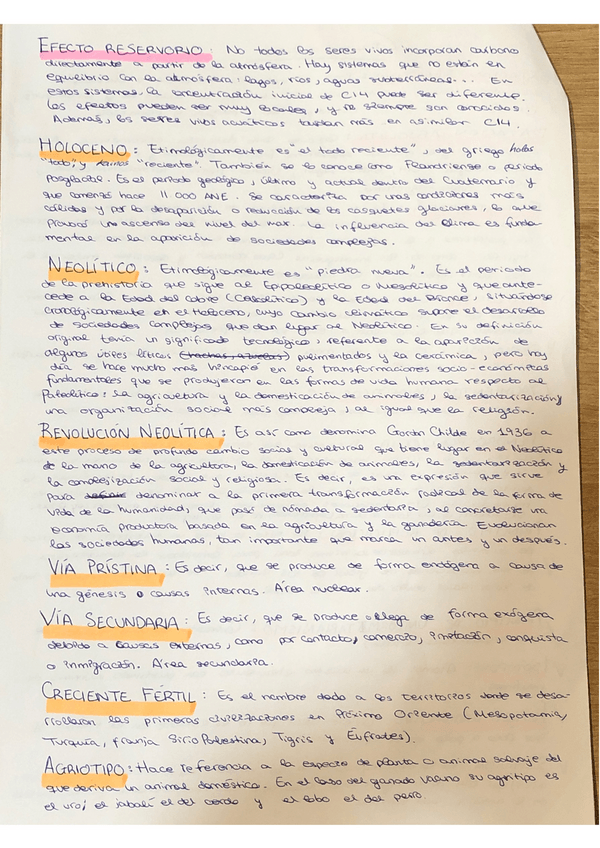 EFECTO RESERVORIO: No todos los seres vivos incorporan carbono
directamente a partir de la atmósfera. Hay sistemas que no están en
equilibrio con la atmósfera: lagos, ríos, aguas subterráneas... En
estos sistemas, la concentración inicial de C14 puede ser diferente.
Los efectos pueden ser muy locales, y no siempre son conocidos.
Además, los seres vivos acuáticos tardan más en asimilar C14.
HOLOCENO: Etimológicamente es "el todo reciente", del griego holos
"todo", y kainos "reciente". También se lo conoce como Flandriense o periodo
Posglacial. Es el periodo geológico, último y actual dentro del Cuaternario y
que comenzó hace 11 000 ANE. Se caracteriza por unas condiciones más
cálidas y por la desaparición o reducción de los casquetes glaciares, lo que
provocó un ascenso del nivel del mar. La influencia del clima es funda-
mental en la aparición de sociedades complejas.
NEOLÍTICO: Etimológicamente es "piedra nueva". Es el periodo
de la prehistoria que sigue al Epipaleolítico o Mesolítico y que ante-
cede a la Edad del Cobre (Calcolítico) y la Edad del Bronce, situándose
cronológicamente en el Holoceno, cuyo cambio climático supone el desarrollo
de sociedades complejas que dan lugar al Neolítico. En su definición
original tenía un significado tecnológico, referente a la aparición de
algunos útiles líticos (hachas, azuelas) pulimentados y la cerámica, pero hoy
día se hace mucho más hincapié en las transformaciones socio-económicas
fundamentales que se produjeron en las formas de vida humana respecto al
Paleolítico: la agricultura y la domesticación de animales, la sedentarización y
una organización social más compleja, al igual que la religión.
REVOLUCIÓN NEOLÍTICA: Es así como denomina Gordon Childe en 1936 a
este proceso de profundo cambio social y cultural que tiene lugar en el Neolítico
de la mano de la agricultura, la domesticación de animales, la sedentarización y
la complejización social y religiosa. Es decir, es una expresión que sirve
para denominar a la primera transformación radical de la forma de
vida de la humanidad, que pasó de nómada a sedentaria, al concretarse una
economía productora basada en la agricultura y la ganadería. Evolucionan
las sociedades humanas, tan importante que marca un antes y un después.
VÍA PRÍSTINA: Es decir, que se produce de forma endógena a causa de
una génesis o causas internas. Área nuclear.
VÍA SECUNDARIA: Es decir, que se produce o llega de forma exógena
debido a causas externas, como por contacto, comercio, imitación, conquista
o inmigración. Área secundaria.
CRECIENTE FÉRTIL: Es el nombre dado a los territorios donde se desa-
rrollaron las primeras civilizaciones en Próximo Oriente (Mesopotamia,
Turquía, franja Sirio Palestina, Tigris y Eúfrates).
AGRIOTIPO: Hace referencia a la especie de planta o animal salvaje del
que deriva un animal doméstico. En el caso del ganado vacuno su agriotipo es
el uro; el jabalí el del cerdo y el lobo el del perro.